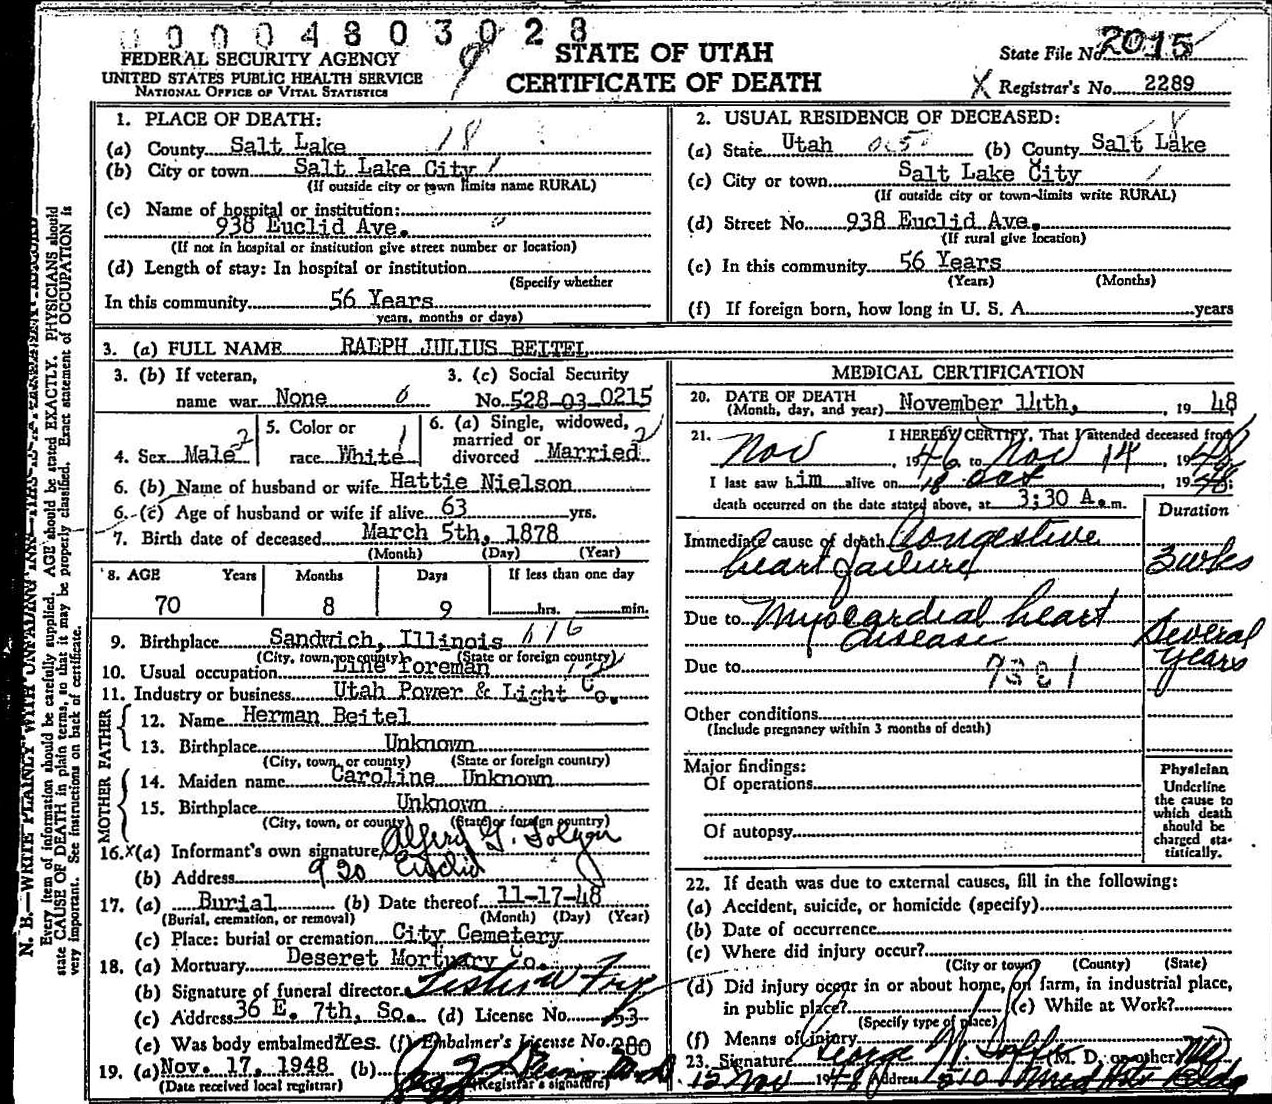 00004803028
FEDERAL SECURITY AGENCY
UNITED STATES PUBLIC HEALTH SERVICE
NATIONAL OFFICE OF VITAL STATISTICS
9
STATE OF UTAH
CERTIFICATE OF DEATH
State File No. 2015
X Registrar's No. 2289
1. PLACE OF DEATH: 18
(a) County Salt Lake
(b) City or town Salt Lake City 1
(If outside city or town limits name RURAL)
(c) Name of hospital or institution:
938 Euclid Ave. 0
(If not in hospital or institution give street number or location)
(d) Length of stay: In hospital or institution
(Specify whether
In this community 56 Years
years, months or days)
2. USUAL RESIDENCE OF DECEASED:
(a) State Utah (b) County Salt Lake
(c) City or town Salt Lake City
(If outside city or town limits write RURAL)
(d) Street No. 938 Euclid Ave.
(If rural give location)
(e) In this community 56 Years
(Years) (Months)
(f) If foreign born, how long in U. S. A. years
3. (a) FULL NAME RALPH JULIUS BEITEL
3. (b) If veteran, 3. (c) Social Security
name war None 0 No. 528-03-0215
4. Sex Male 2
5. Color or
race White 1
6. (a) Single, widowed,
married or
divorced Married 2
6. (b) Name of husband or wife Hattie Nielson
6. (c) Age of husband or wife if alive 63 yrs.
7. Birth date of deceased March 5th, 1878
(Month) (Day) (Year)
8. AGE Years Months Days If less than one day
70 8 9 hrs. min.
9. Birthplace Sandwich, Illinois 116
(City, town, or county) (State or foreign country)
10. Usual occupation Line Foreman
11. Industry or business Utah Power & Light Co.
FATHER
12. Name Herman Beitel
13. Birthplace Unknown
(City, town, or county) (State or foreign country)
MOTHER
14. Maiden name Caroline Unknown
15. Birthplace Unknown
(City, town, or county) (State or foreign country)
16. X (a) Informant's own signature Alfred G.
(b) Address 920 Euclid
17. (a) Burial (b) Date thereof 11-17-48
(Burial, cremation, or removal) (Month) (Day) (Year)
(c) Place: burial or cremation City Cemetery
18. (a) Mortuary Deseret Mortuary Co.
(b) Signature of funeral director
(c) Address 36 E. 7th, So. (d) License No.
(e) Was body embalmed? Yes. (f) Embalmer's License No. 280
19. (a) Nov. 17, 1948 (b)
(Date received local registrar) (Registrar's signature)
MEDICAL CERTIFICATION
20. DATE OF DEATH
(Month, day, and year) November 14th, , 19 48
21. I HEREBY CERTIFY, That I attended deceased from
Nov , 19 46 to Nov 14 , 19 48
I last saw him alive on 18 Oct , 19 48;
death occurred on the date stated above, at 3:30 A. m.
Duration
Immediate cause of death Congestive
heart failure 3 wks
Due to Myocardial heart
disease Several
years
Due to
Other conditions
(Include pregnancy within 3 months of death)
Major findings:
Of operations
Of autopsy
Physician
Underline
the cause to
which death
should be
charged sta-
tistically.
22. If death was due to external causes, fill in the following:
(a) Accident, suicide, or homicide (specify)
(b) Date of occurrence
(c) Where did injury occur?
(City or town) (County) (State)
(d) Did injury occur in or about home, on farm, in industrial place,
in public place? (e) While at Work?
(Specify type of place)
(f) Means of injury
23. Signature George W. (M. D. or other) MD
15 Nov 1948 Address 510 Med Arts Bldg
N. B.—WRITE PLAINLY WITH UNFADING INK—THIS IS A PERMANENT RECORD
Every item of information should be carefully supplied. AGE should be stated EXACTLY. PHYSICIANS should
state CAUSE OF DEATH in plain terms, so that it may be properly classified. Exact statement of OCCUPATION is
very important. See instructions on back of certificate.